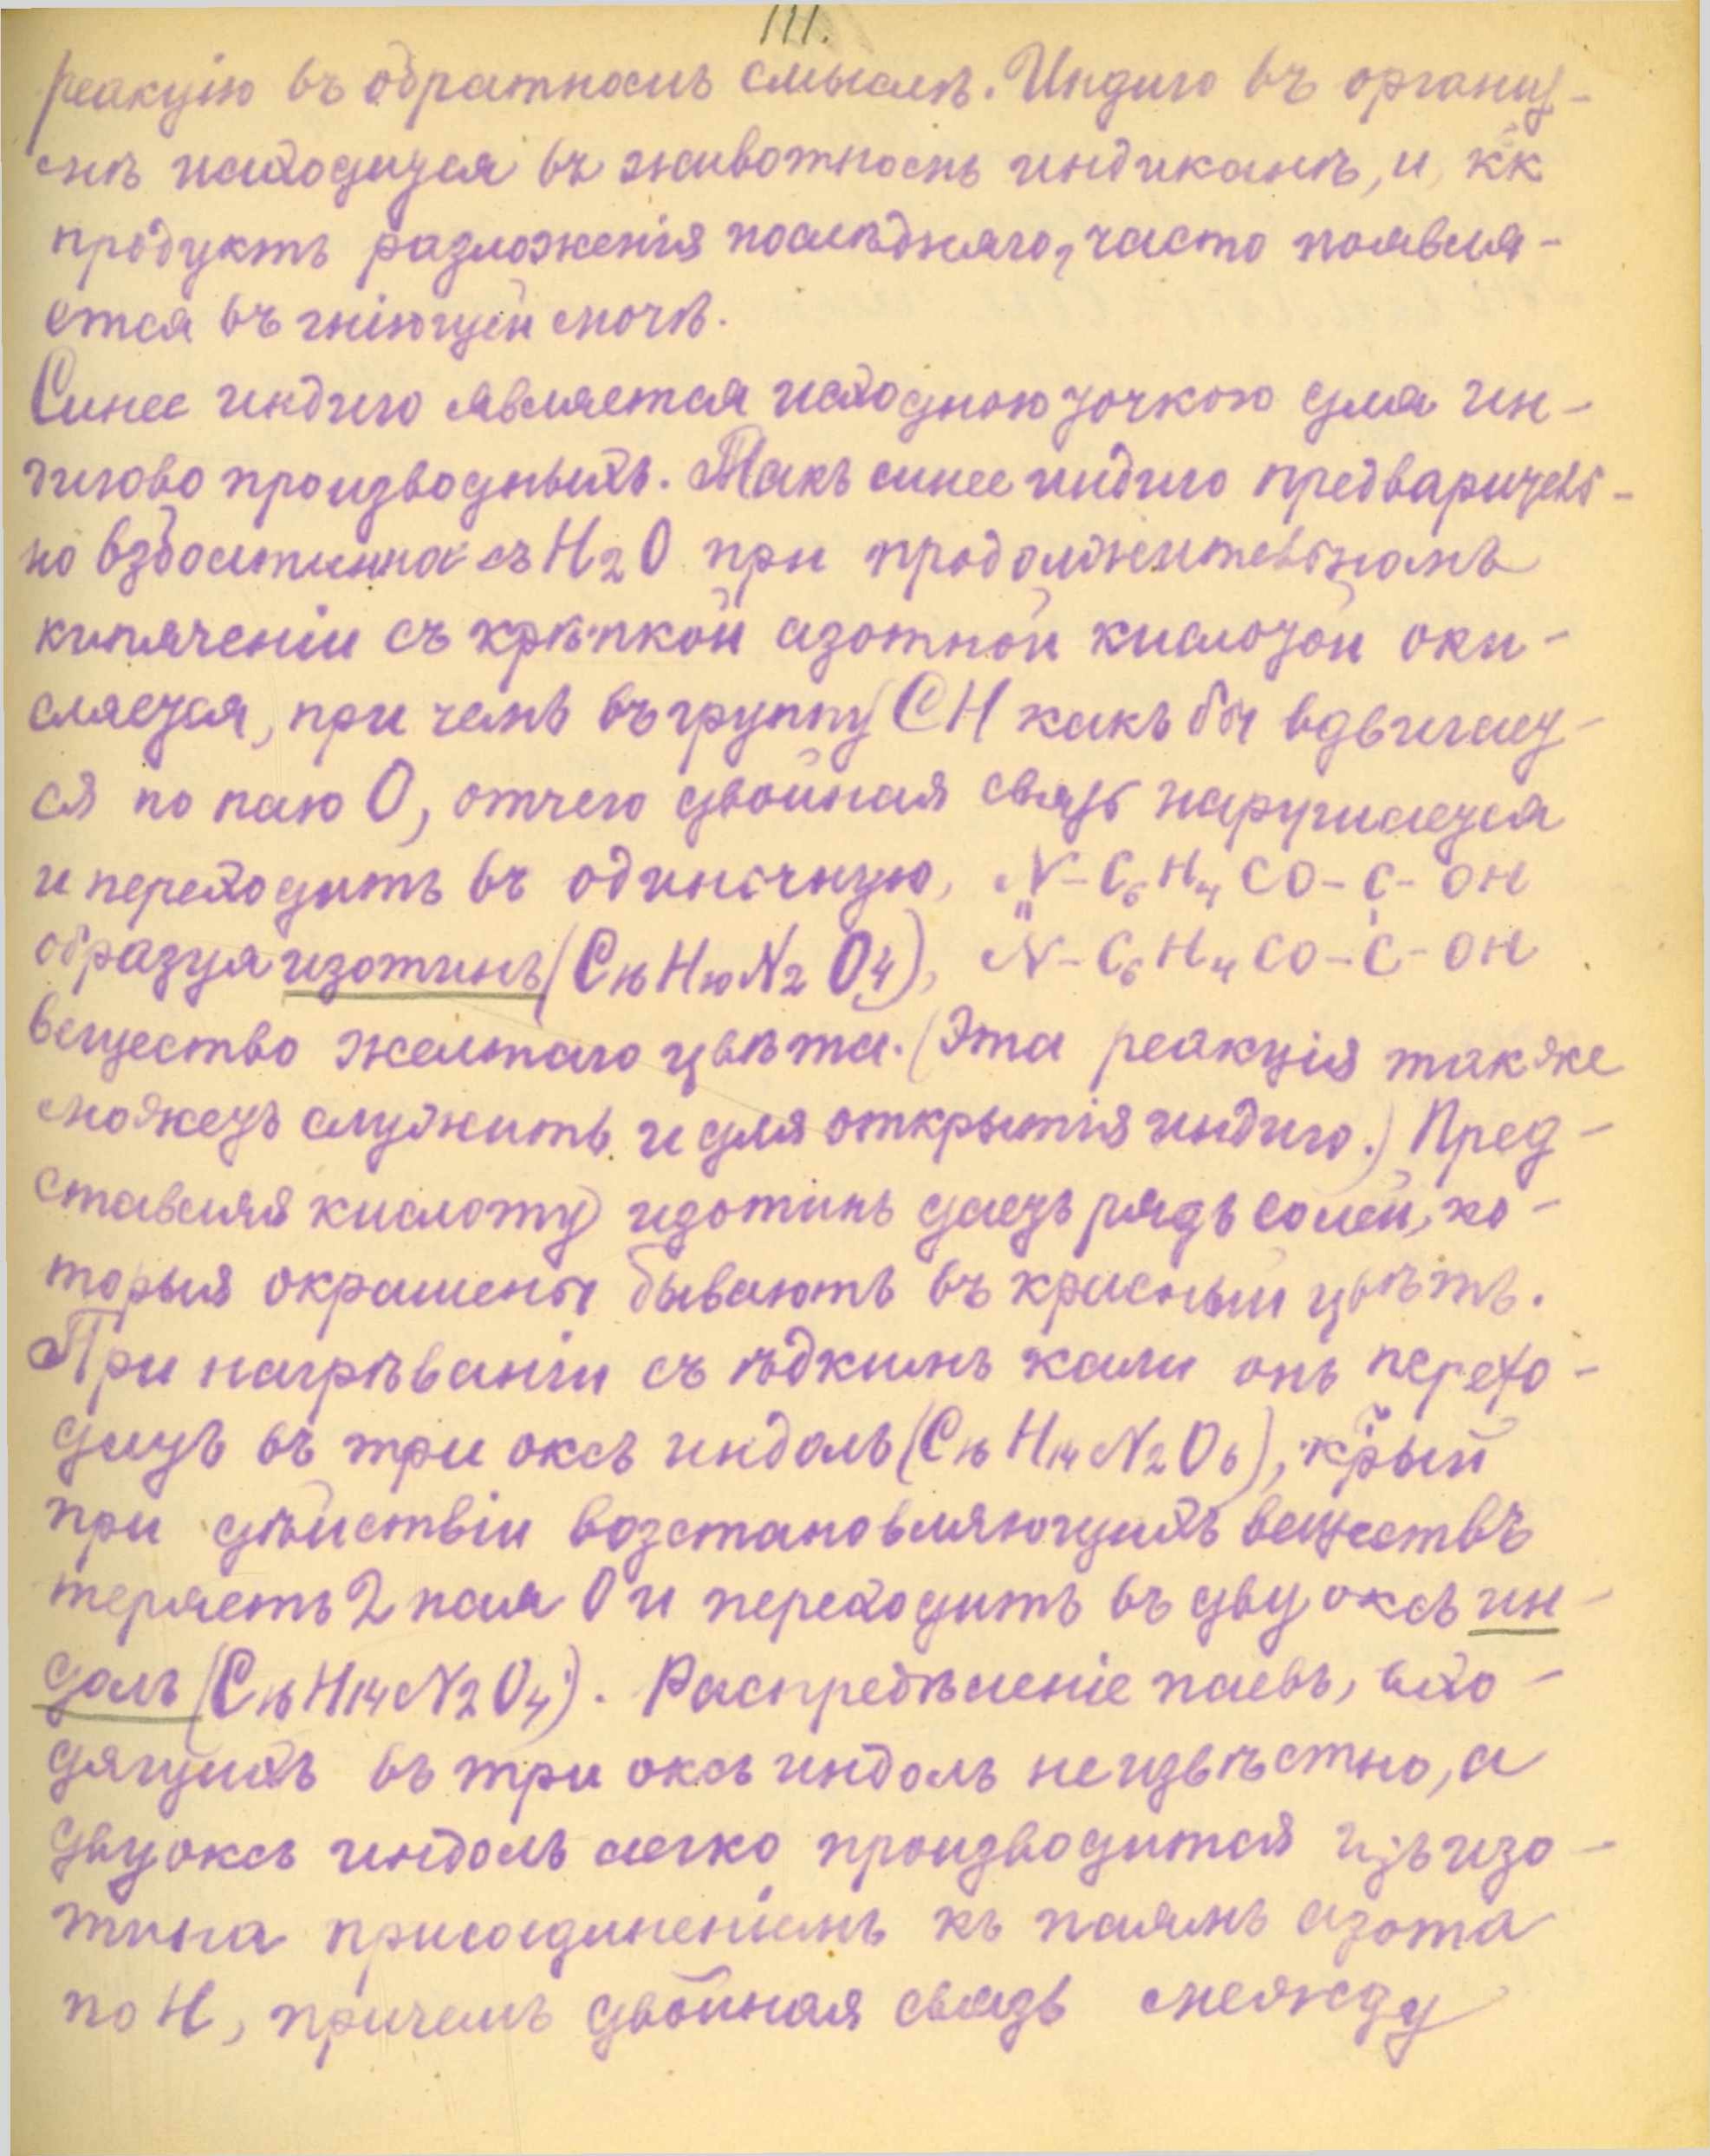 111.
реакцію въ обратномъ смыслѣ. Индиго въ организ-
мѣ находится въ животномъ индиканѣ, и, кк
продуктъ разложенія послѣдняго, часто появля-
ется въ гніющей мочѣ.
Синее индиго является исходною точкою для ин-
дигово производныхъ. Такъ синее индиго предваритель-
но взболтанное съ H₂O при продолжительномъ
кипяченіи съ крѣпкой азотной кислотой оки-
сляется, при чемъ въ группу CH какъ бы вдвигает-
ся по паю O, отчего двойная связь нарушается
и переходитъ въ одиночную, N-C₆H₄CO-C-OH
образуя изотинъ (C₁₆H₁₀N₂O₄), N-C₆H₄CO-C-OH
вещество желтаго цвѣта. (Эта реакція также
можетъ служить и для открытія индиго.) Пред-
ставляя кислоту изотинъ даетъ рядъ солей, ко-
торыя окрашены бываютъ въ красный цвѣтъ.
При нагрѣваніи съ ѣдкимъ кали онъ перехо-
дитъ въ три оксъ индолъ (C₁₆H₁₄N₂O₆), крый
при дѣйствіи возстановляющихъ веществъ
теряетъ 2 пая O и переходитъ въ двуоксъ ин-
долъ (C₁₆H₁₄N₂O₄). Распредѣленіе паевъ, вхо-
дящихъ въ три оксъ индолъ неизвѣстно, а
двуоксъ индолъ легко производится изъ изо-
тина присоединеніемъ къ паямъ азота
по H, причемъ двойная связь между